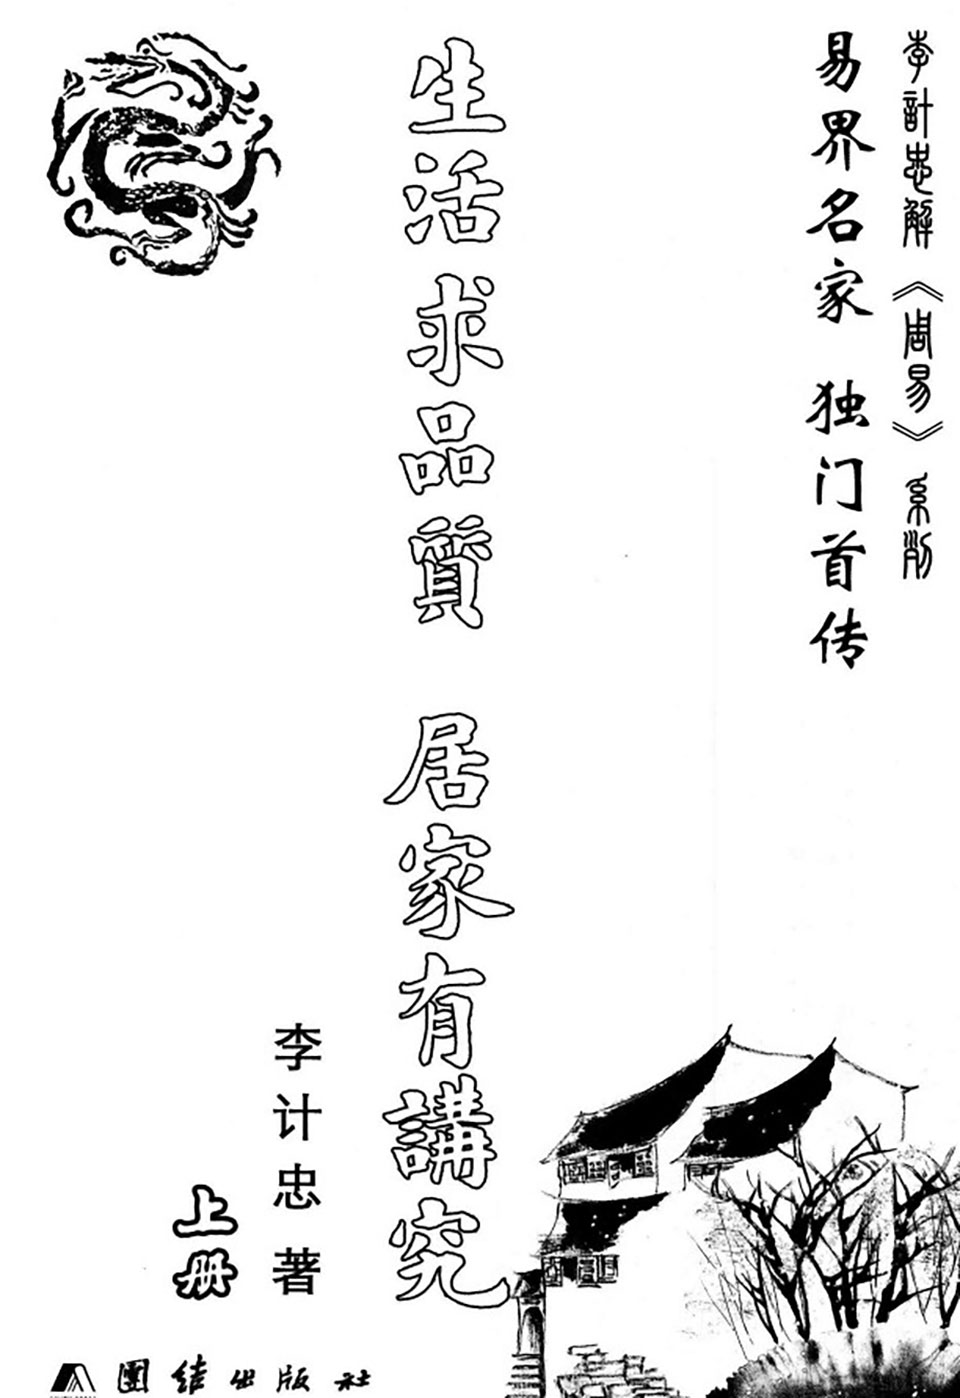 李計忠解《周易》系列
易界名家 独门首传
生活求品質 居家有講究
李计忠 著
上册
團结出版社